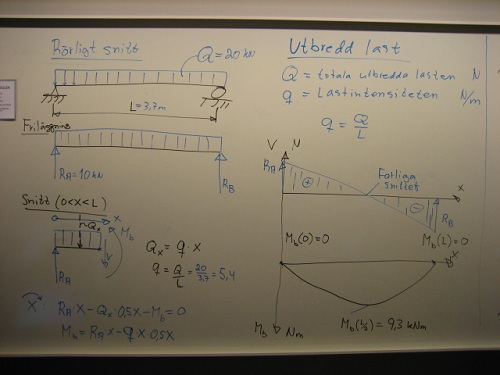 Rörligt snitt
Q = 20 kN
L = 3,7m
Friläggning
RA = 10 kN
RB
Snitt (0<x<L)
x
Qx
Mb
V
RA
Qx = q · x
q = Q/L = 20/3,7 = 5,4
RA · x - Qx · 0,5x - Mb = 0
Mb = RA x - q x 0,5x
Utbredd last
Q = totala utbredda lasten N
q = Lastintensiteten N/m
q = Q/L
V N
RA
Farliga
snittet
x
+
-
RB
Mb(0) = 0
Mb(L) = 0
x
Mb Nm
Mb(L/2) = 9,3 kNm